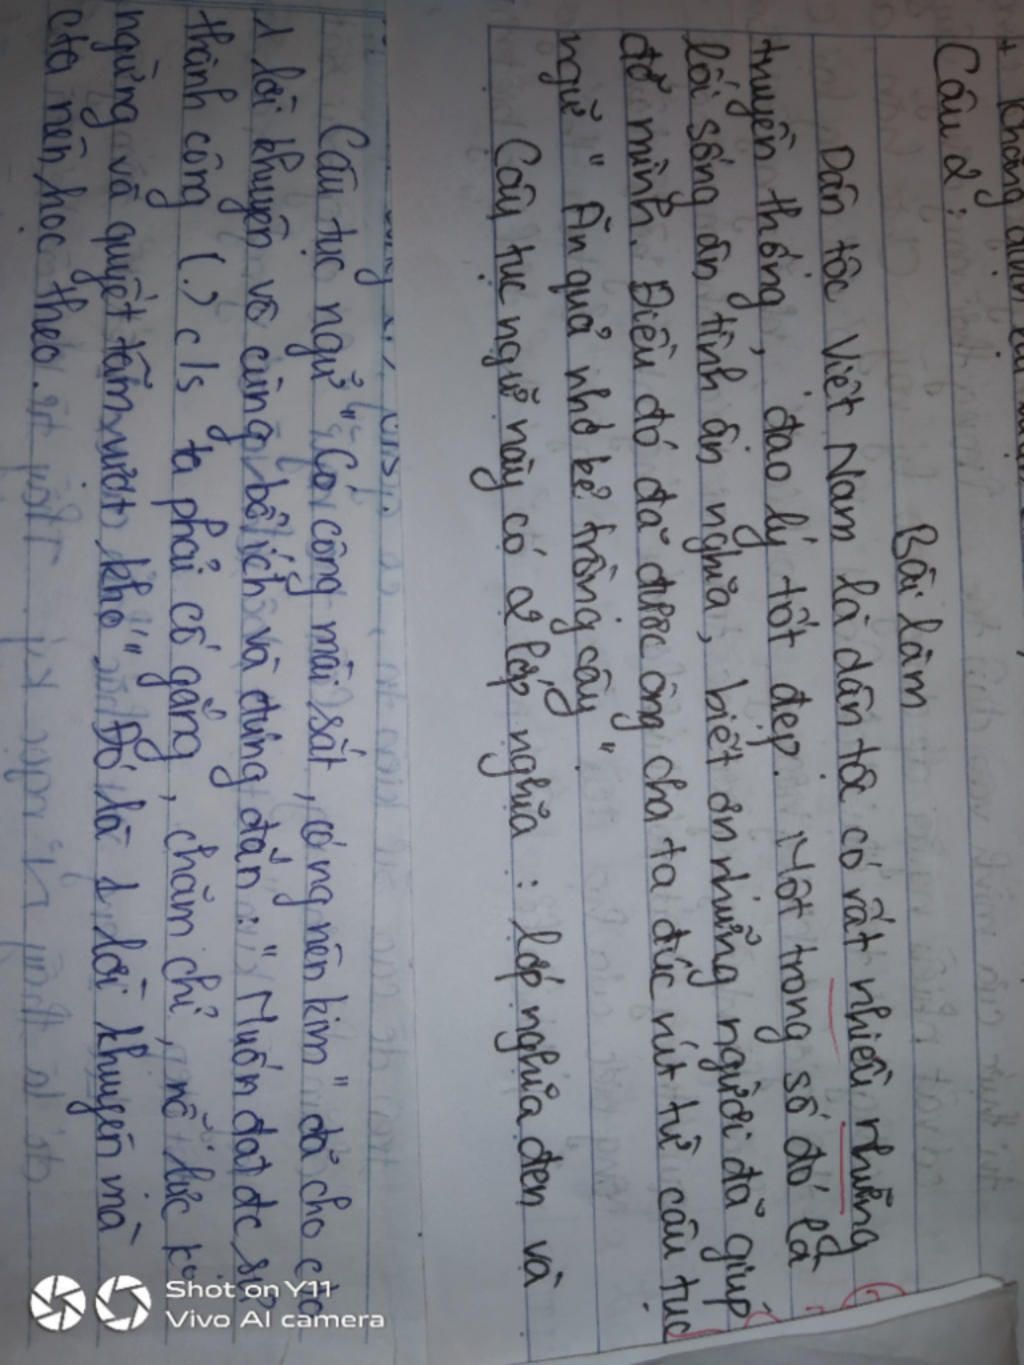 Câu 2:
Bài làm
Dân tộc Việt Nam là dân tộc có rất nhiều những
truyền thống, đạo lý tốt đẹp. Một trong số đó là
lối sống ân tình ân nghĩa, biết ơn những người đã giúp
đỡ mình. Điều đó đã được ông cha ta đúc rút từ câu tục
ngữ "Ăn quả nhớ kẻ trồng cây"
Câu tục ngữ này có 2 lớp nghĩa : lớp nghĩa đen và
Câu tục ngữ "Có công mài sắt, có ngày nên kim" đã cho
1 lời khuyên vô cùng bổ ích và đúng đắn : "Muốn đạt đc
thành công (.) c/s ta phải cố gắng, chăm chỉ, nỗ lực
ngừng và quyết tâm vượt khó" Đó là 1 lời khuyên mà
cta nên học theo.
Shot on Y11
Vivo AI camera